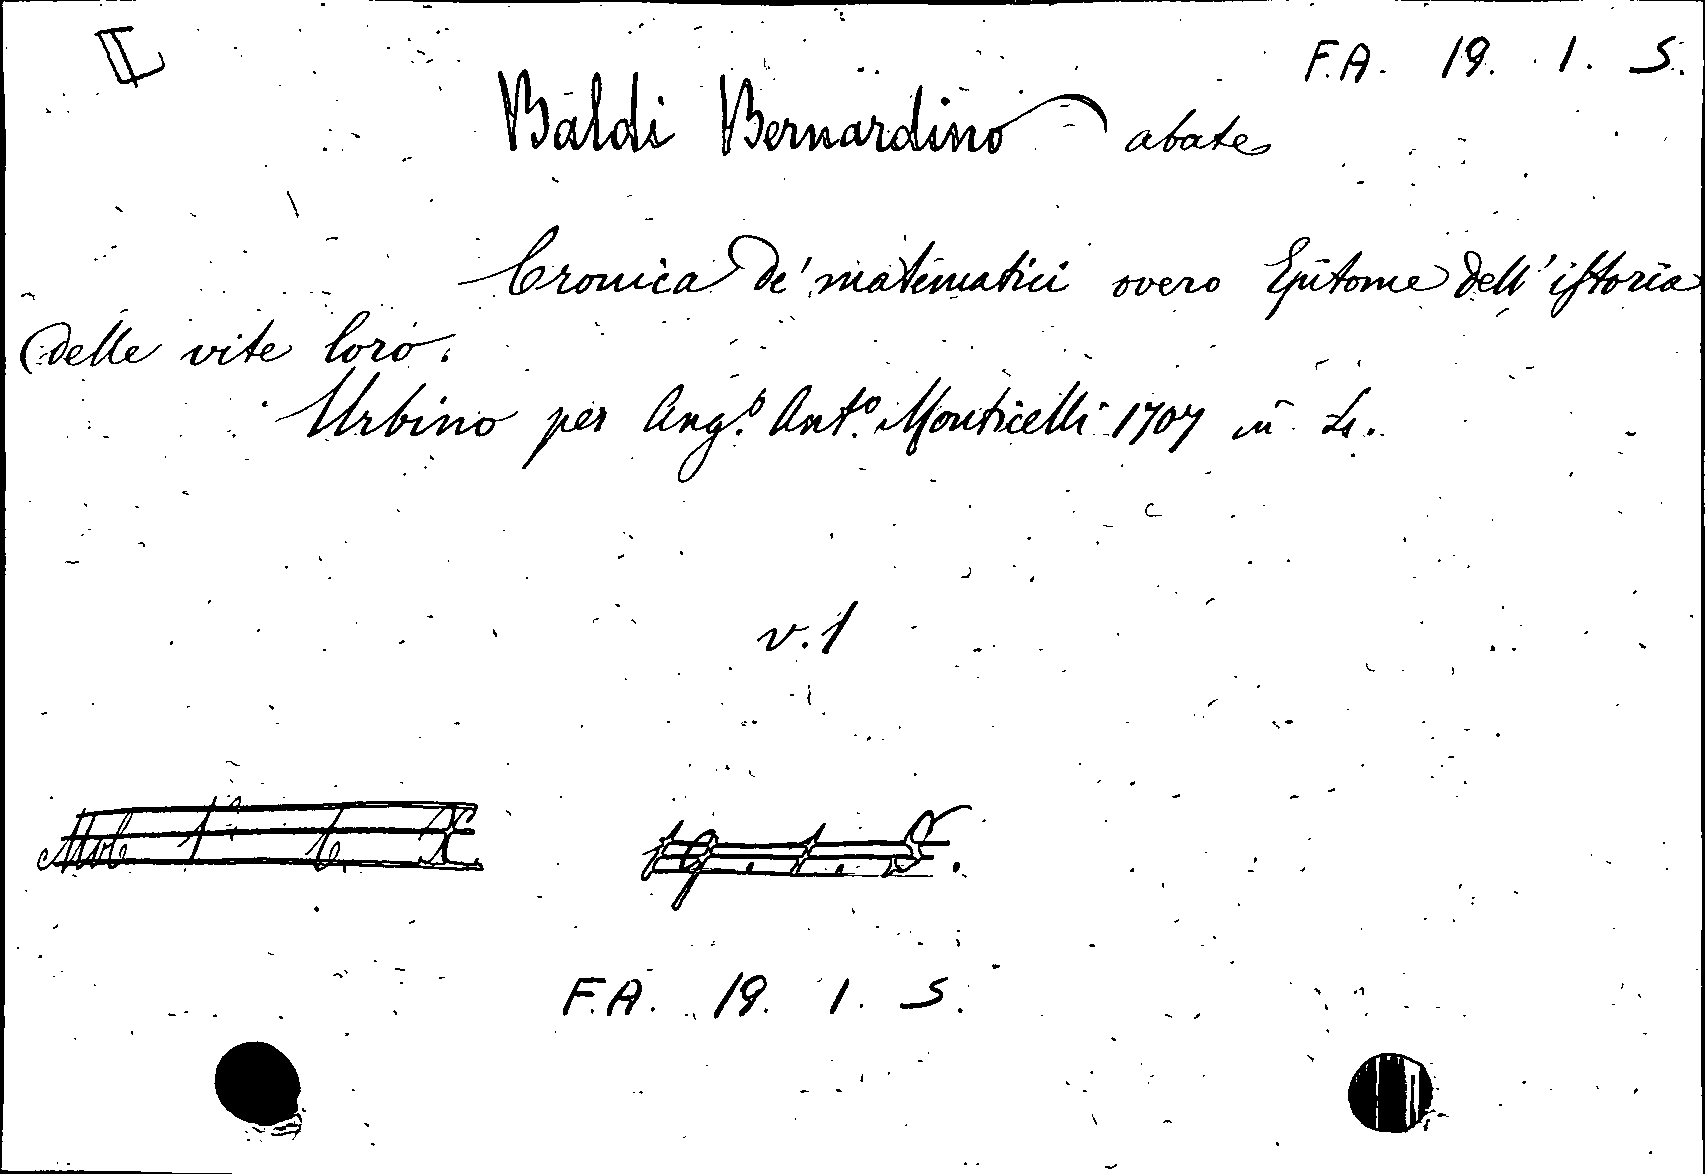 F.A. 19. 1. S.
Baldi Bernardino abate
Cronica de' matematici overo Epitome dell' istoria
delle vite loro.
Urbino per Ang.º Ant.º Monticelli 1707 in 4.
v. 1
19. 1. S.
F.A. 19. 1. S.